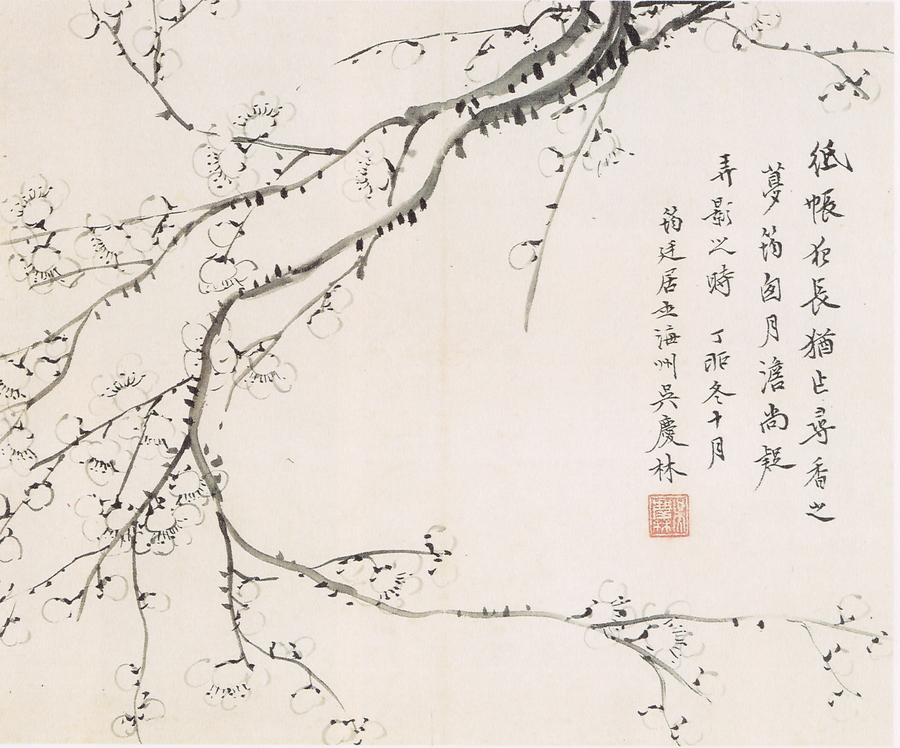 紙帳夜長猶乍尋香之
夢筠囪月澹尚疑
弄影之時 丁卯冬十月
筠廷居士海州吳慶林